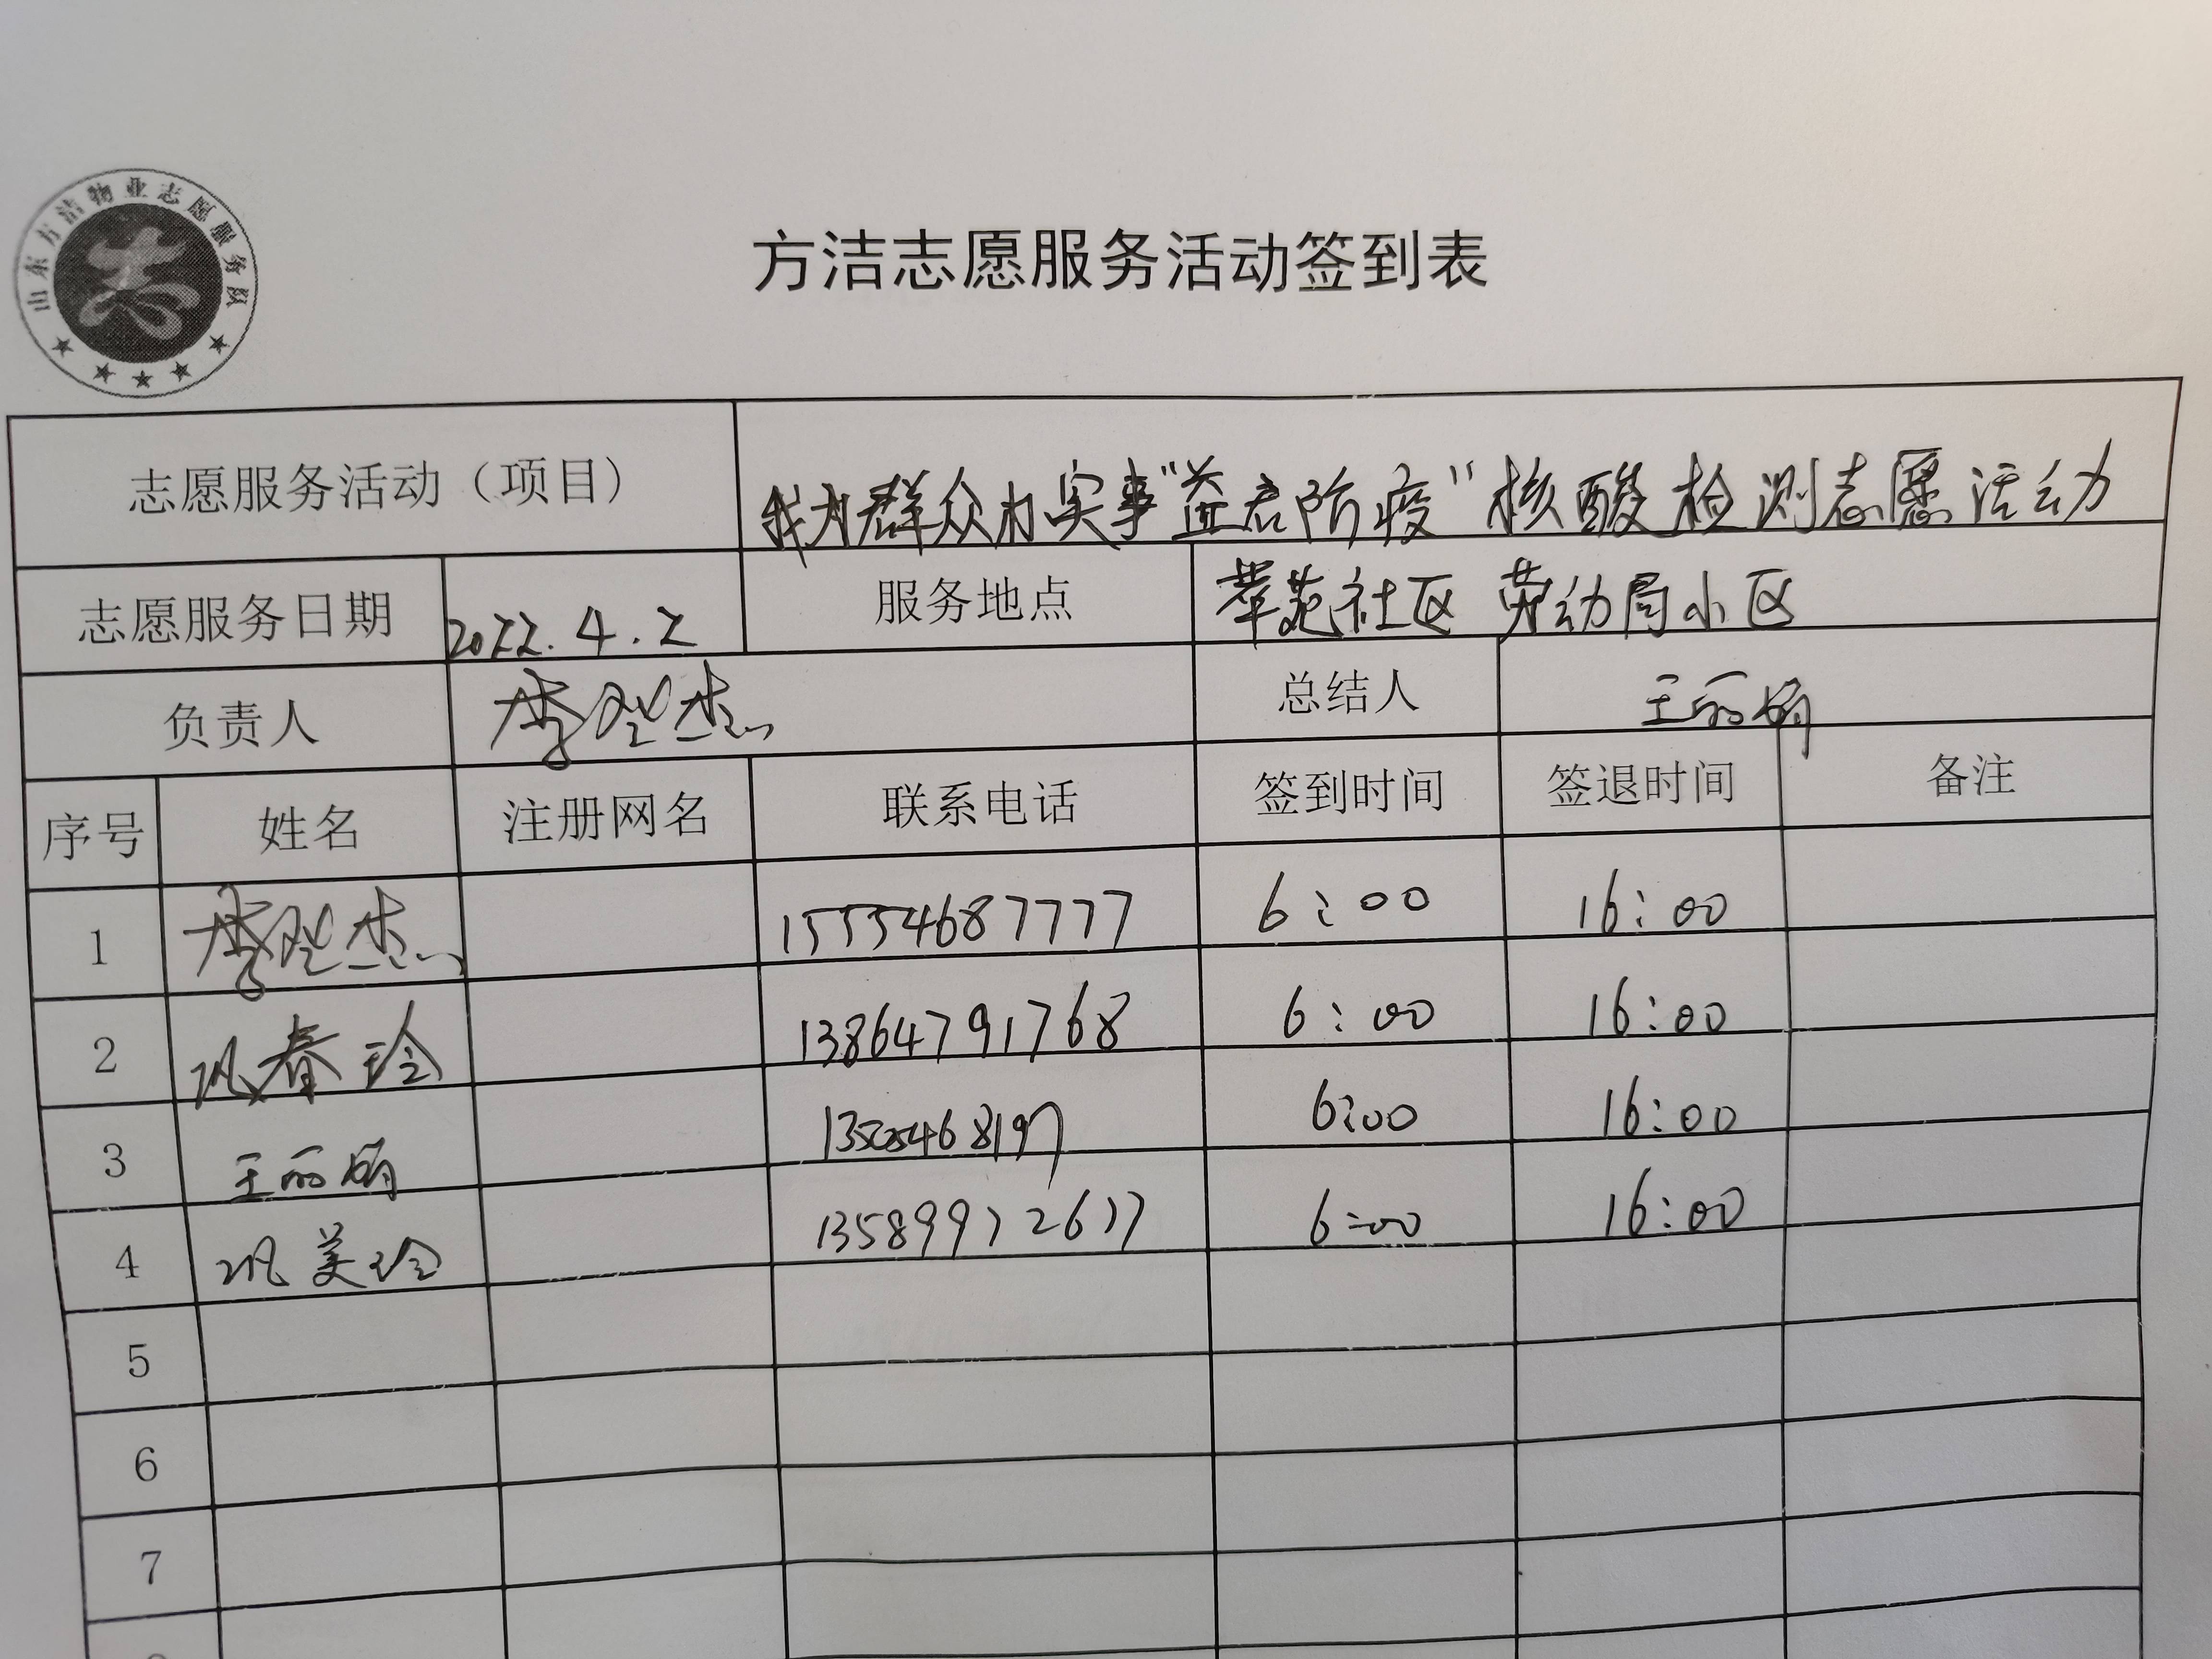 山东方洁物业志愿服务队
方洁志愿服务活动签到表
志愿服务活动（项目） 我为群众办实事"益起防疫"核酸检测志愿活动
志愿服务日期 2022.4.2 服务地点 莘苑社区 劳动局小区
负责人 李 杰 总结人 王丽娟
序号 姓名 注册网名 联系电话 签到时间 签退时间 备注
1 李 杰 15554687777 6:00 16:00
2 巩春玲 13864791768 6:00 16:00
3 王丽娟 6:00 16:00
4 巩美玲 6:00 16:00
5
6
7